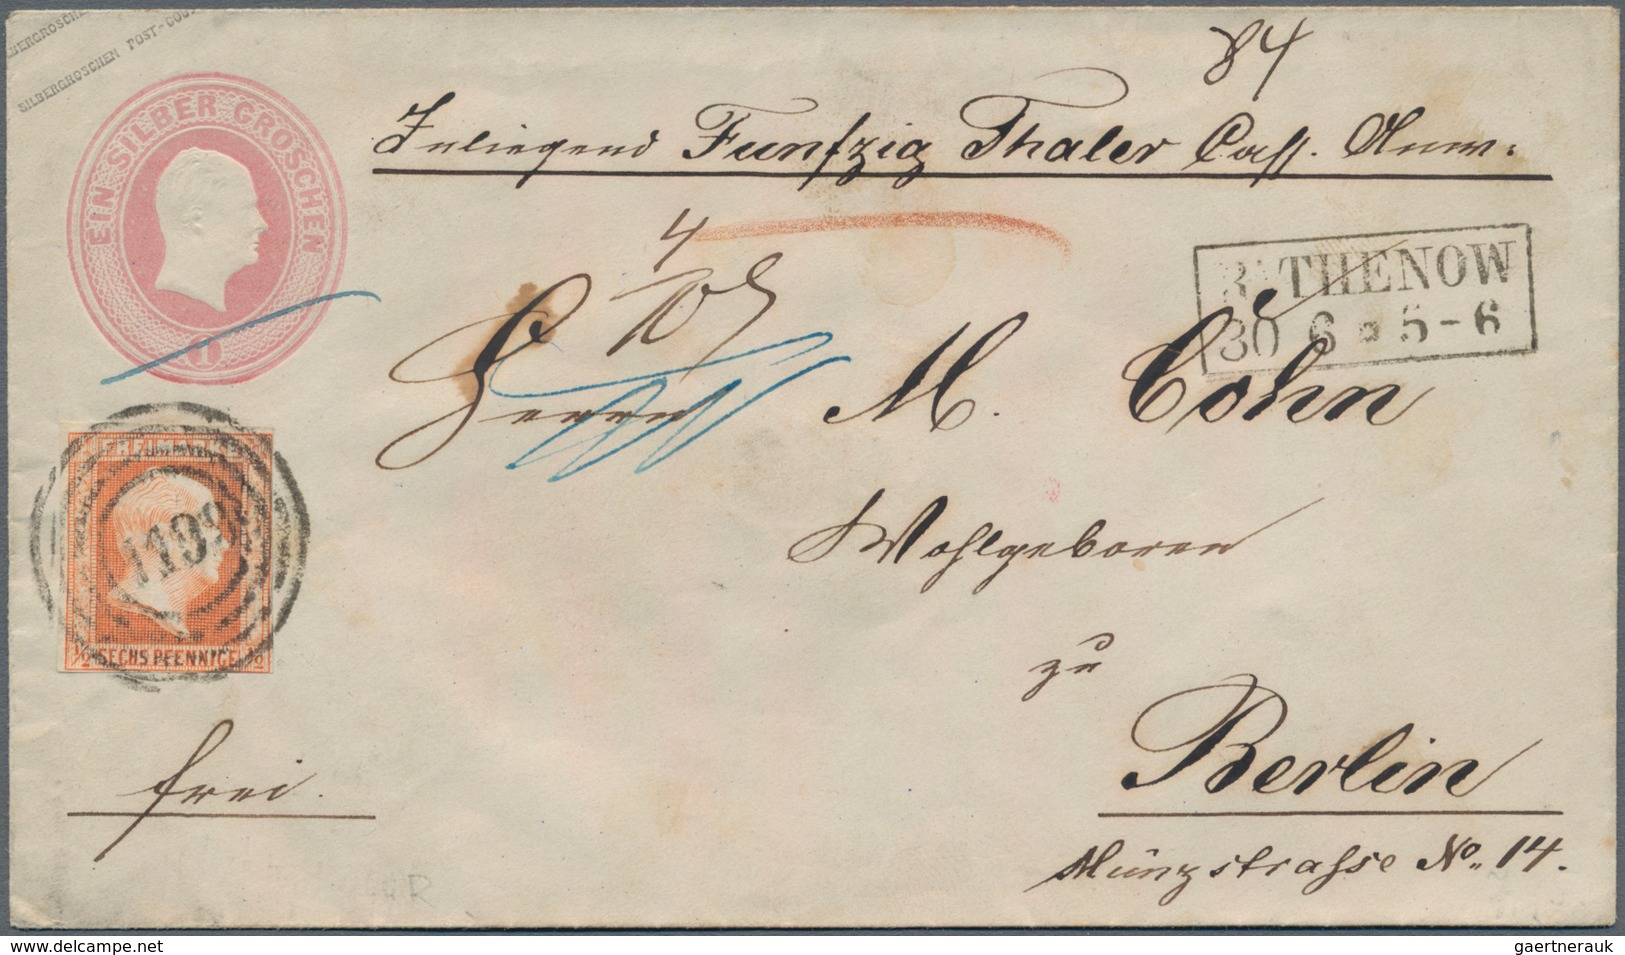 SILBERGROSCHEN
SILBERGROSCHEN POST-COU
84
EIN SILBER GROSCHEN
1
Inliegend Funfzig Thaler Cass. Anw:
4
RATHENOW
30 6 * 5-6
Herrn M. Cohn
FREIMARKE
1199
1/2 SECHS PFENNIGE 1/2
Wohlgeboren
zu
Berlin
frei.
Münzstrasse No. 14.
R
delcampe.net
gaertnerauk